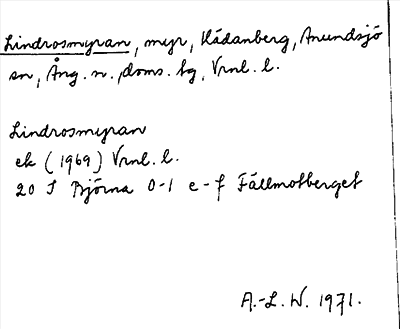 Lindrosmyran, myr, Kådanberg, Anundsjö
sn, Ång. n. doms. hg, Vrnl. l.
Lindrosmyran
ek (1969) Vrnl. l.
20 I Björna 0-1 e-f Fällmotberget
A.-L. W. 1971.